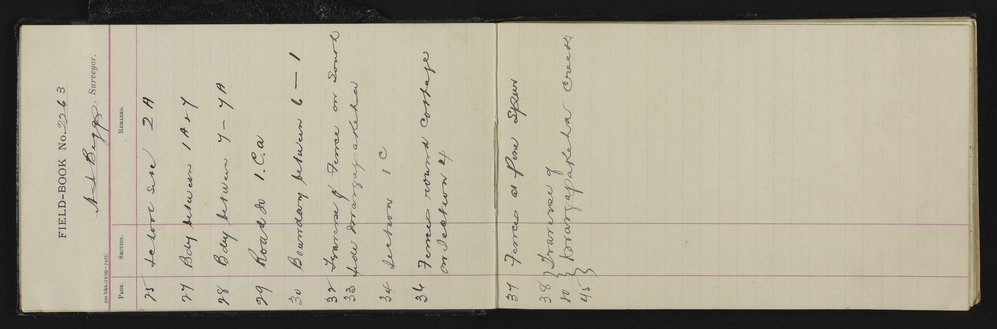 FIELD-BOOK No. 2263
A D Beggs, Surveyor.
PAGE. SECTION. REMARKS.
25 School site 2 A
27 Bdy between 1A & 7
28 Bdy between 7 – 7A
29 Road to 1.C.a
30 Boundary between 6 – 1
32 Traverse of Fence on South
33 side Mangapakeha
34 Section 1 C
36 Fence round Cottage
on Section 4
37 Fence at Pine Spur
38 } Traverse of
to } Mangapakeha Creek
45 }